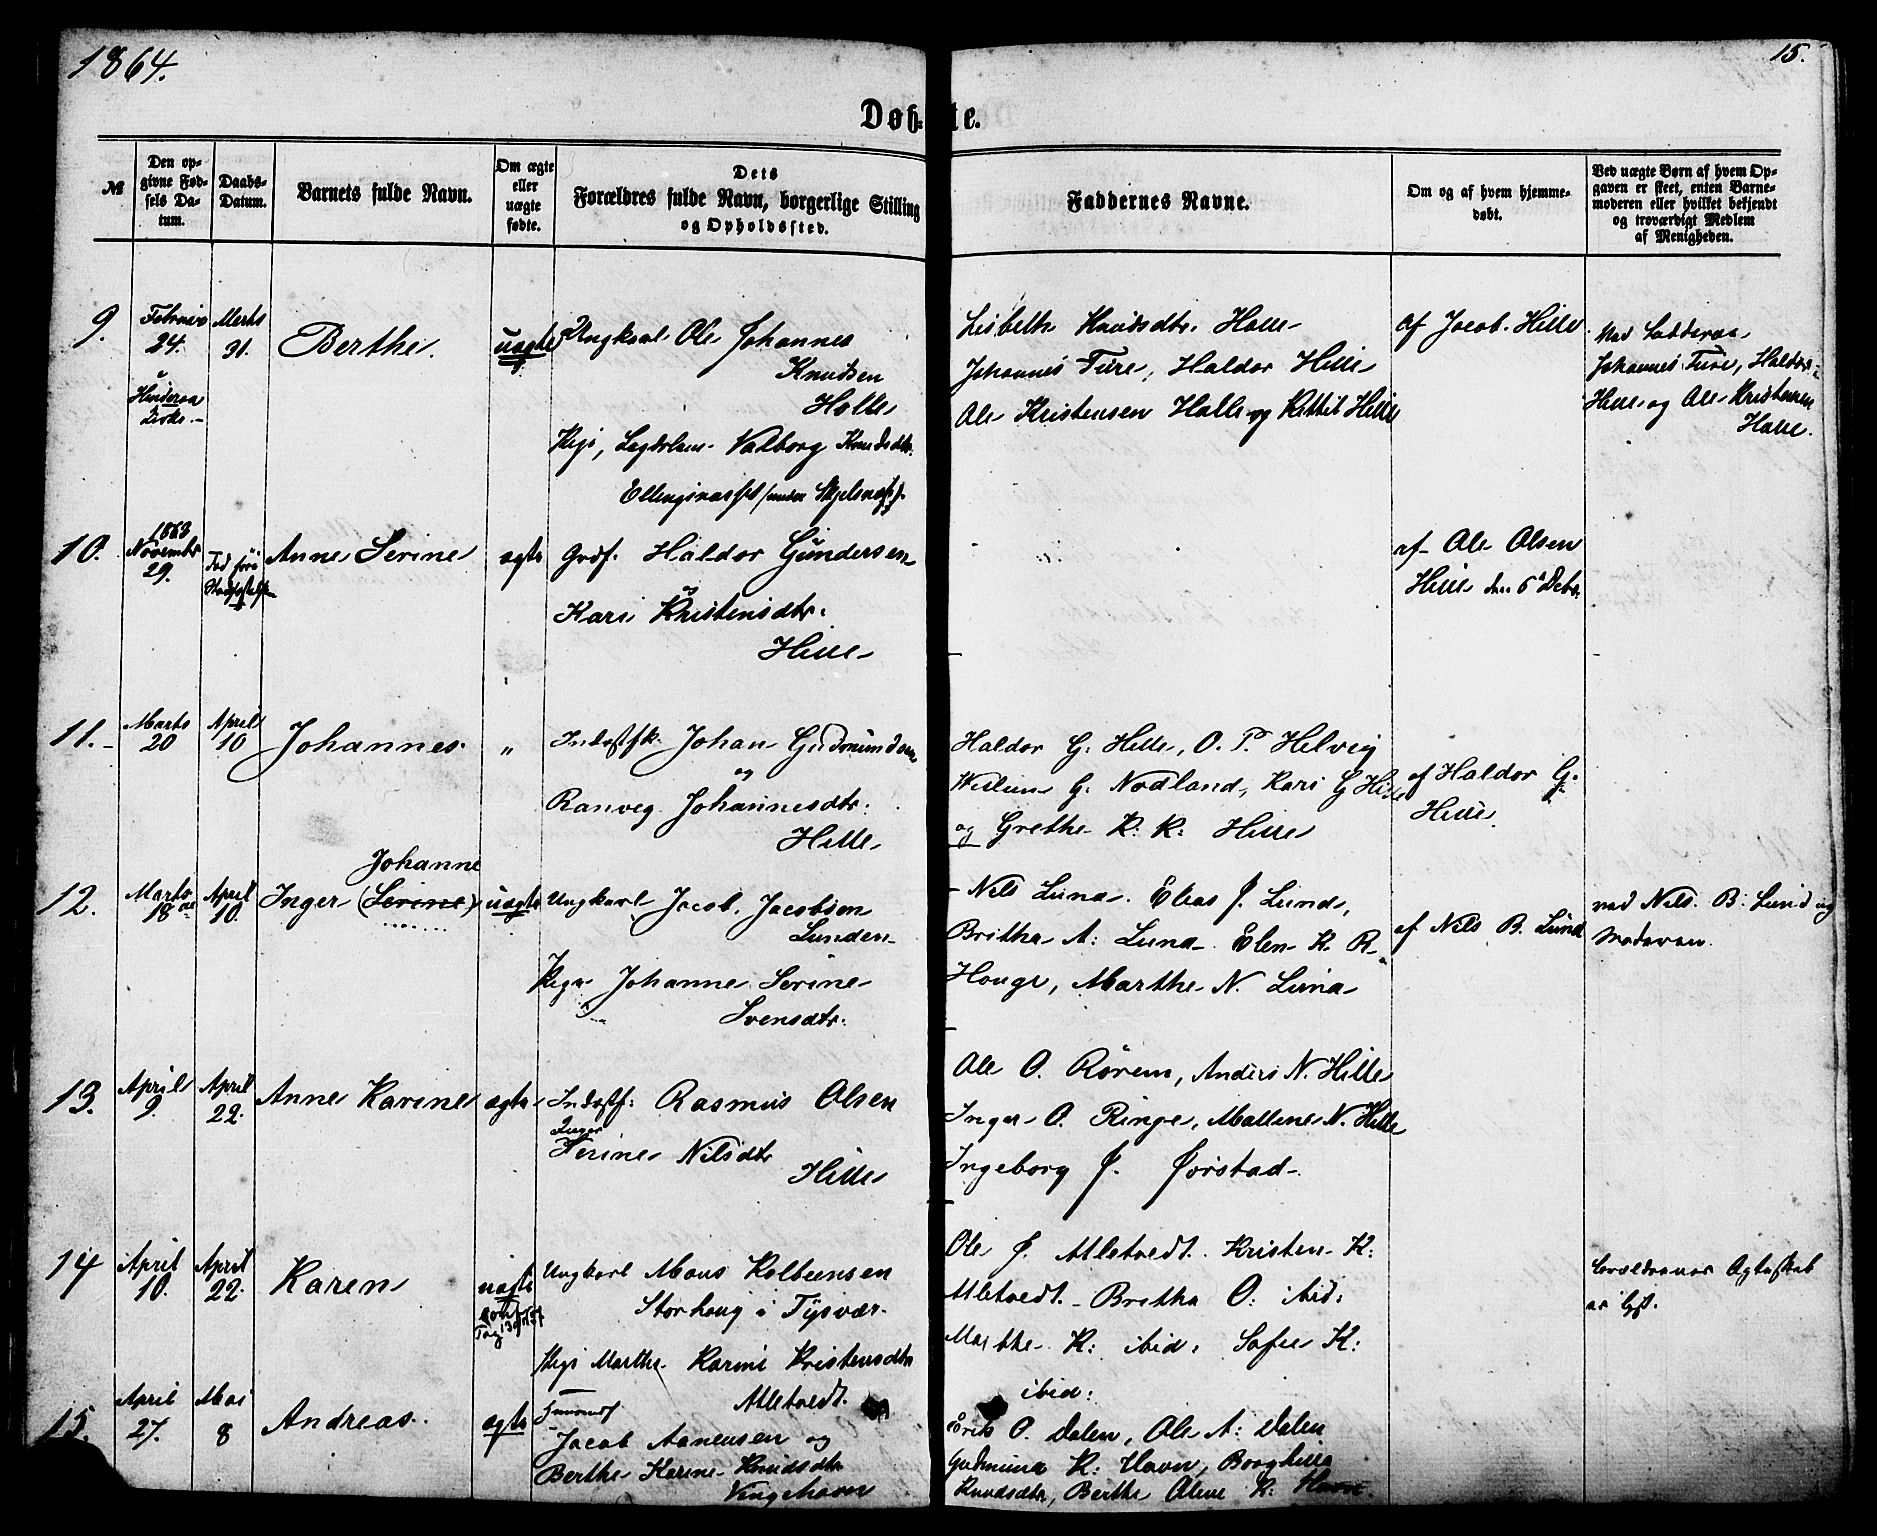 1864.
15.
Døbte.
№
Den opgivne Fødsels Datum.
Daabs-Datum.
Barnets fulde Navn.
Om ægte eller uægte fødte.
Dets Forældres fulde Navn, borgerlige Stilling og Opholdssted.
Faddernes Navne.
Om og af hvem hjemmedøbt.
Ved uægte Børn af hvem Opgaven er skeet, enten Barnemoderen eller hvilket bekjendt og troværdigt Medlem af Menigheden.
9.
24.
31.
Berthe.
uægte
Ungkarl Ole Johannes
Knudsen
Halle
Pige, Valborg Knudsdtr.
Lisbeth Knudsdtr. Halle
Johannes Ture, Haldor Hille
Ole Kristensen Halle og Kittil Hille
af Jacob Hille
ved Fadderne
Johannes Ture, Haldor
Hille og Ole Kristensen
Halle.
10.
1863
November
29.
Anne Serine
ægte
Haldor Gundersen
Kari Kristensdtr.
Hille
af Ole Olsen
Hille den 6 Decbr.
11.
Marts
20
April
10
Johannes
"
Johan Gudmundsen
og
Ranveg Johannesdtr.
Hille
Haldor G. Hille, O. P. Helvig
G. Nodland, Kari G Hille
og Grethe K: K: Hille
af Haldor G.
Hille
12.
Marts
18
April
10.
Johanne
Inger (Serine)
uægte
Ungkarl Jacob Jacobsen
Lunden
Pige Johanne Serine
Svensdtr.
Nils Lund. Elias J. Lund,
Britha A: Lund Elen K. R
Houge, Marthe N. Lund
af Nils B. Lund
ved Nils B: Lund og
Moderen
13.
April
9.
April
22.
Anne Karine
ægte
Rasmus Olsen
Inger
Serine Nilsdtr
Hille
Ole O. Rørem, Anders N. Hille
Inger O. Ringe, Malline N. Hille
Ingeborg J. Jørstad
14
April
10.
April
22.
Karen
uægte
Ungkarl Mons Kolbeensen
Storhoug i Tysvær
Pige Marthe Karine Kristensdtr
Atletvedt.
Ole J. Atletvedt. Kristen K:
Atletvedt. Britha O: ibid:
Marthe K: ibid: Sofie K:
ibid:
15.
April
27.
Mai
8
Andreas.
ægte
Jacob Aanensen og
Berthe Karine Knudsdtr
O. Dalen, Ole A: Dalen
Gudmund K: Havn, Borghille
Knudsdtr, Berthe Oline K: Havn.